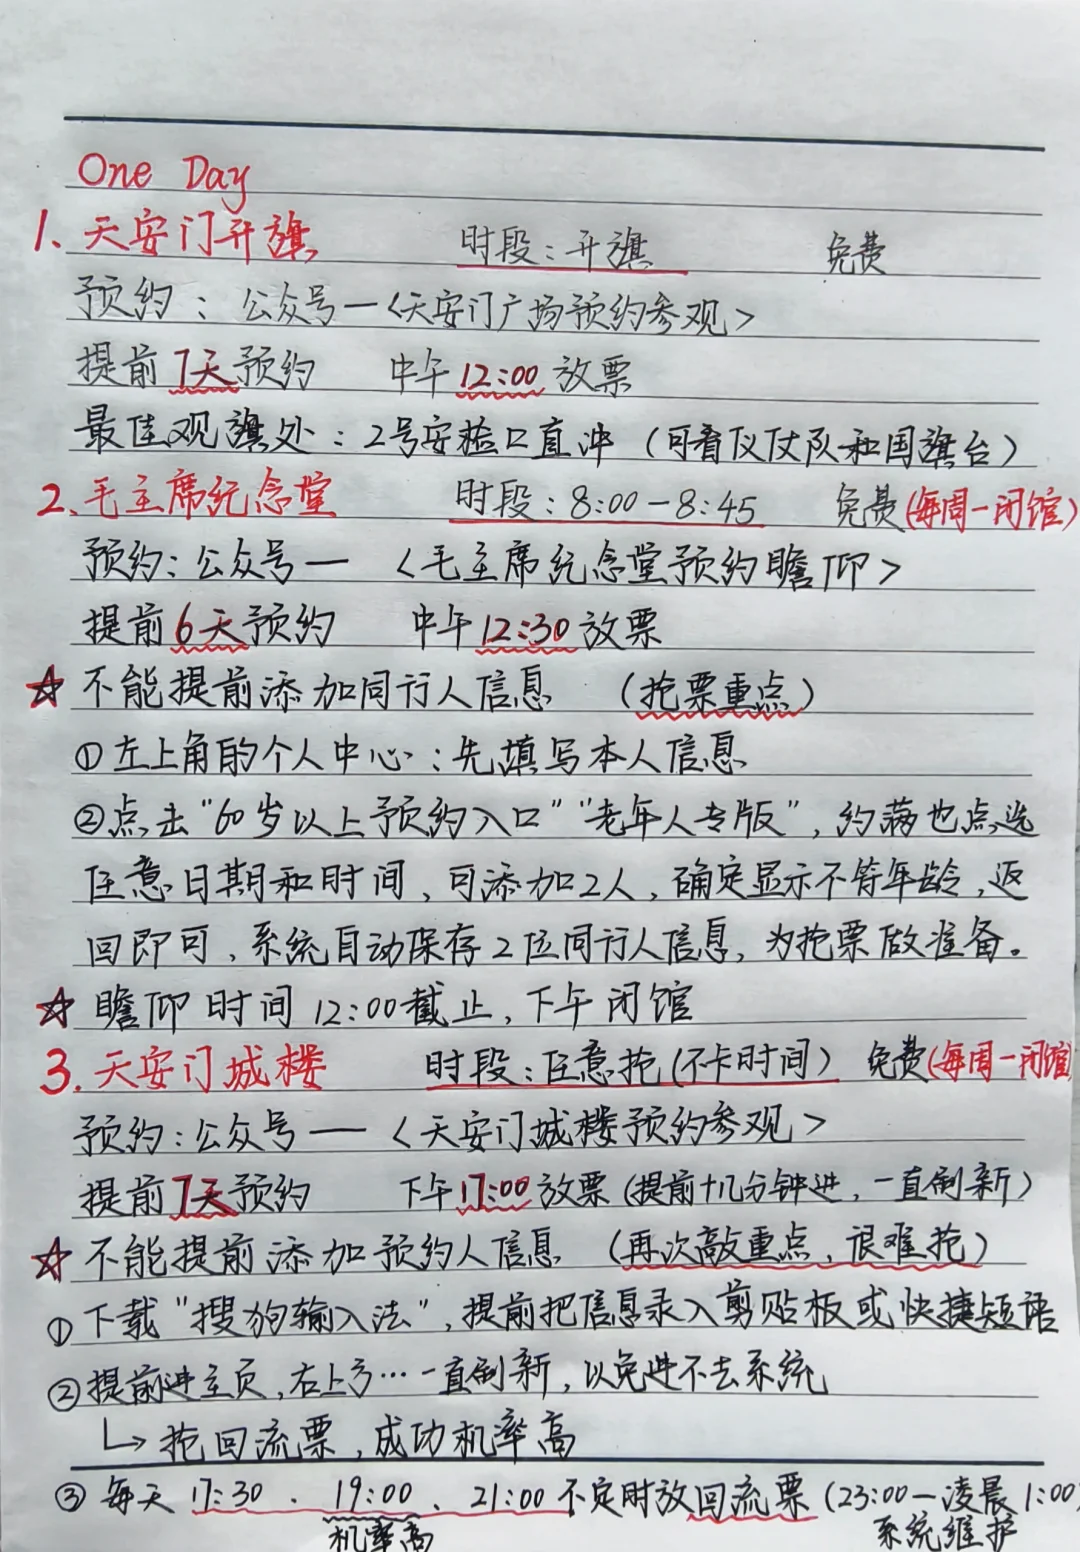 One Day
1、天安门升旗 时段：升旗 免费
预约：公众号一<天安门广场预约参观>
提前7天预约 中午12:00放票
最佳观旗处：2号安检口直冲（可看仪仗队和国旗台）
2、毛主席纪念堂 时段：8:00-8:45 免费(每周一闭馆)
预约：公众号一 <毛主席纪念堂预约瞻仰>
提前6天预约 中午12:30放票
☆不能提前添加同行人信息 （抢票重点）
①左上角的个人中心：先填写本人信息
②点击“60岁以上预约入口”“老年人专版”，约满也点选
任意日期和时间，可添加2人，确定显示不符年龄，返
回即可，系统自动保存2位同行人信息，为抢票做准备。
☆瞻仰时间12:00截止，下午闭馆
3.天安门城楼 时段：任意抢(不卡时间) 免费(每周一闭馆)
预约：公众号一 <天安门城楼预约参观>
提前7天预约 下午17:00放票(提前十几分钟进，一直刷新)
☆不能提前添加预约人信息 （再次敲重点，很难抢）
①下载“搜狗输入法”，提前把信息录入剪贴板或快捷短语
②提前进主页，右上方…一直刷新，以免进不去系统
↳抢回流票，成功机率高
③每天17:30、19:00、21:00不定时放回流票(23:00一凌晨1:00
机率高 系统维护